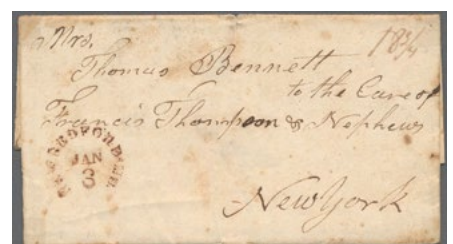 Mrs.
18¾
Thomas Bennett
to the Care of
Francis Thompson & Nephews
JAN
3
New York